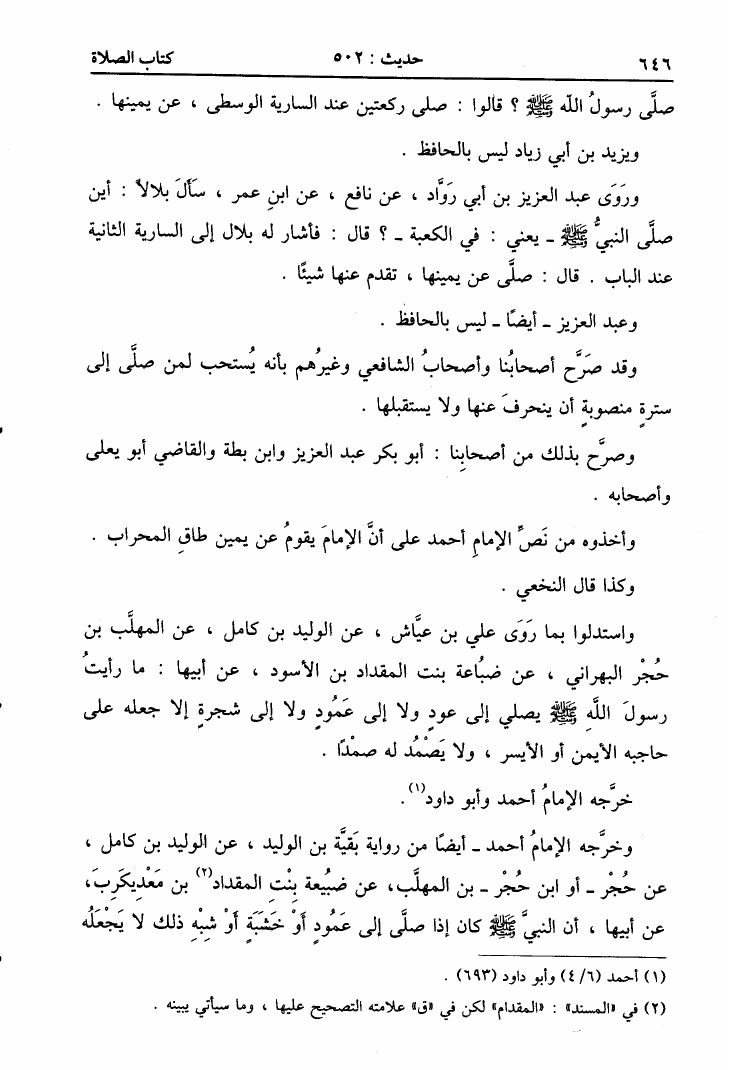 ٦٤٦ حديث : ٥٠٢ كتاب الصلاة
صلَّى رسولُ الله ﷺ ؟ قالوا : صلى ركعتين عند السارية الوسطى ، عن يمينها .
ويزيد بن أبي زياد ليس بالحافظ .
ورَوَى عبد العزيز بن أبي رَوَّاد ، عن نافع ، عن ابنِ عمر ، سأَلَ بلالاً : أين
صلَّى النبيُّ ﷺ ـ يعني : في الكعبة ـ ؟ قال : فأشار له بلال إلى السارية الثانية
عند الباب . قال : صلَّى عن يمينها ، تقدم عنها شيئًا .
وعبد العزيز ـ أيضًا ـ ليس بالحافظ .
وقد صَرَّح أصحابُنا وأصحابُ الشافعي وغيرُهم بأنه يُستحب لمن صلَّى إلى
سترةٍ منصوبةٍ أن ينحرفَ عنها ولا يستقبلها .
وصرَّح بذلك من أصحابِنا : أبو بكر عبد العزيز وابن بطة والقاضي أبو يعلى
وأصحابه .
وأخذوه من نَصِّ الإمامِ أحمد على أنَّ الإمامَ يقومُ عن يمين طاقِ المحراب .
وكذا قال النخعي .
واستدلوا بما رَوَى علي بن عيَّاش ، عن الوليد بن كامل ، عن المهلَّب بن
حُجْر البهراني ، عن ضبُاعة بنت المقداد بن الأسود ، عن أبيها : ما رأيتُ
رسولَ اللَّهِ ﷺ يصلي إلى عودٍ ولا إلى عَمُودٍ ولا إلى شجرةٍ إلا جعله على
حاجبه الأيمن أو الأيسر ، ولا يَصْمُد له صمْدًا .
خرَّجه الإمامُ أحمد وأبو داود(١).
وخرَّجه الإمامُ أحمد ـ أيضًا من رواية بَقيَّة بن الوليد ، عن الوليد بن كامل ،
عن حُجْر ـ أو ابن حُجْر ـ بن المهلَّب، عن ضبُيعة بِنْتِ المقداد(٢) بن مَعْديكَرِبَ،
عن أبيها ، أن النبيَّ ﷺ كان إذا صلَّى إلى عَمُودٍ أَوْ خَشَبَةٍ أَوْ شِبْهِ ذلك لا يَجْعَلُه
(١) أحمد (٤/٦) وأبو داود (٦٩٣) .
(٢) في «المسند» : «المقدام» لكن في «ق» علامته التصحيح عليها ، وما سيأتي يبينه .